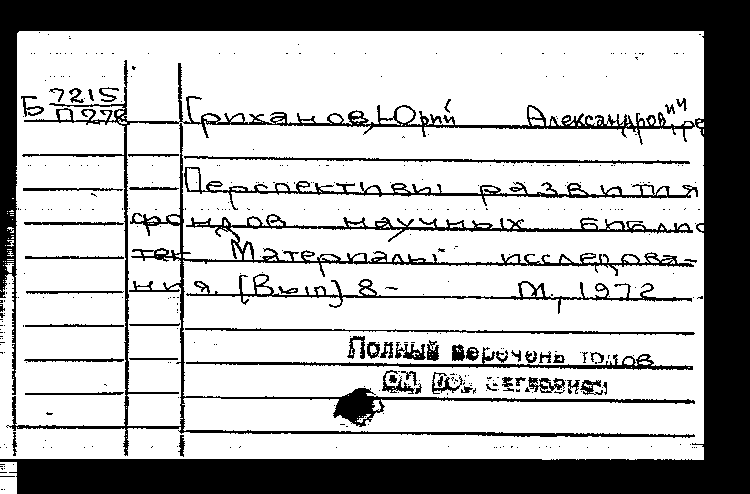 Б 7215
П 278
Гриханов, Юрий Александрович, ре
Перспективы развития
фондов научных библио
тек. Материалы исследова-
ния. [Вып] 8- М., 1972
Полный перечень томов
см. под заглавием